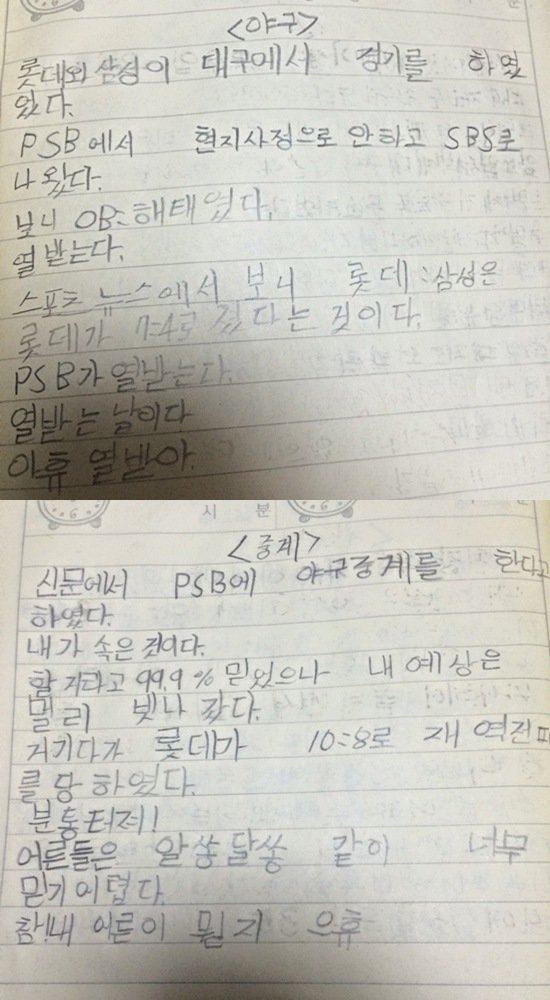 <야구>
롯데와 삼성이 대구에서 경기를 하였
었다.
PSB에서 현지사정으로 안하고 SBS로
나왔다.
보니 OB:해태였다.
열받는다.
스포츠 뉴스에서 보니 롯데:삼성은
롯데가 7:4로 졌다는 것이다.
PSB가 열받는다.
열받는 날이다
아휴 열받아.
시 분
<중계>
신문에서 PSB에 야구중계를 한다고
하였다.
내가 속은 것이다.
할 거라고 99.9% 믿었으나 내 예상은
멀리 빗나갔다.
거기다가 롯데가 10:8로 재역전패
를 당하였다.
분통터져!
어른들은 알쏭달쏭 같이 너무
믿기 어렵다.
참!내 어른이 뭔지 으휴